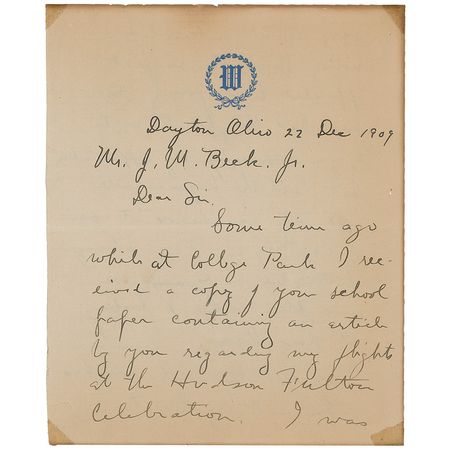 W
Dayton Ohio 22 Dec 1909
Mr. J. M. Beck. Jr.
Dear Sir.
Some time ago
while at College Park I rec-
eived a copy of your school
paper containing an article
by you regarding my flights
at the Hudson Fulton
Celebration. I was